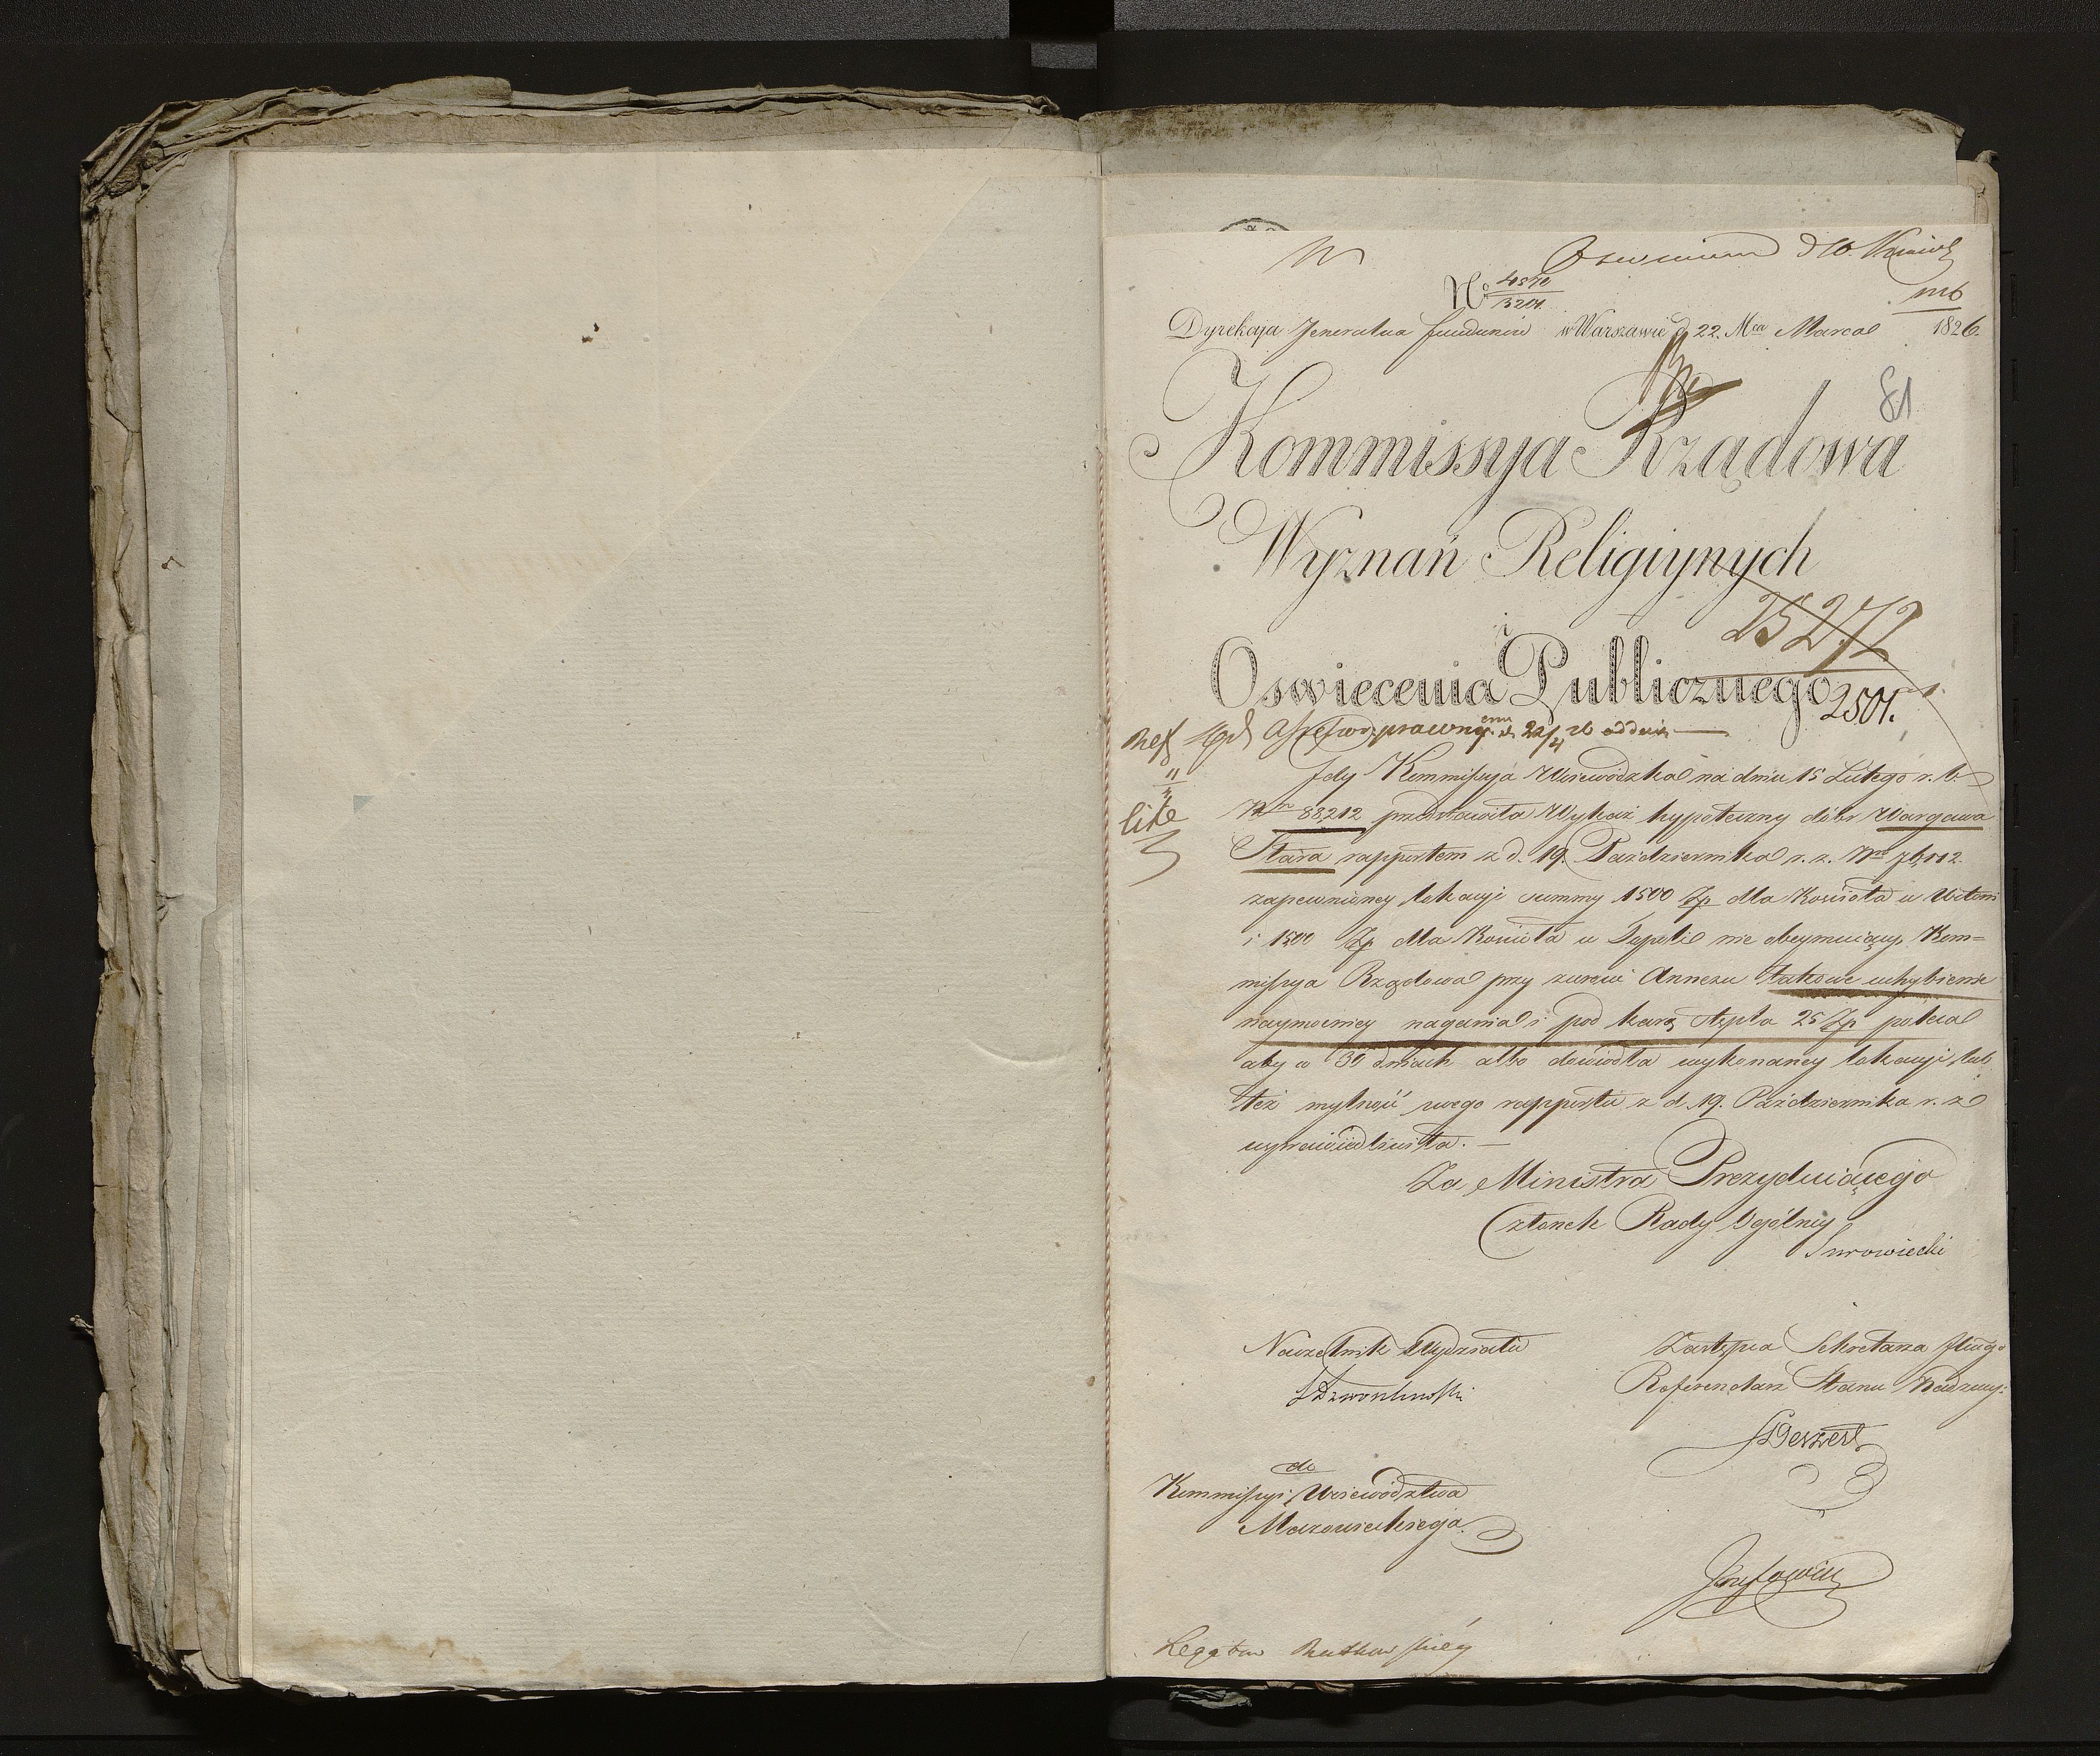 No 4570
13204
Dyrekcja Jeneralna funduszów w Warszawie d. 22. Mca Marca 1826.
81
Kommissyia Rządowa
Wyznań Religiynych
i
Oswiecenia Publicznego
25272
2501.
Jdy Kommissyja Woiewodzka na dniu 15 Lutego r. b.
Nro 88,212 przedstawiła Wykaz hypoteczny dóbr Wargawa
Stara rapportem z d. 19. Października r. z. Nro 76,112
zapewnioney lokacyi summy 1500 Zp dla Kościoła w Witoni
i 1500 Zp dla Kościoła w nie obeymuiący, Kom=
missya Rządowa przy zwrocie Annexu takowe uchybienie
naymocniey nagania i pod karą stępla 25 Zp poleca
aby w 30 dniach albo dowiodła wykonaney lokacyi, lub
też mylność swego rapportu z d. 19. Października r. z.
usprawiedliwiła. —
Za Ministra Prezyduiącego
Członek Rady Ogólney
Surowiecki
Naczelnik Wydziału
Zastępca Sekretarza Jlnego
Referendarz Stanu Nadzwy:
do
Kommissyi Woiewództwa
Mazowieckiego.